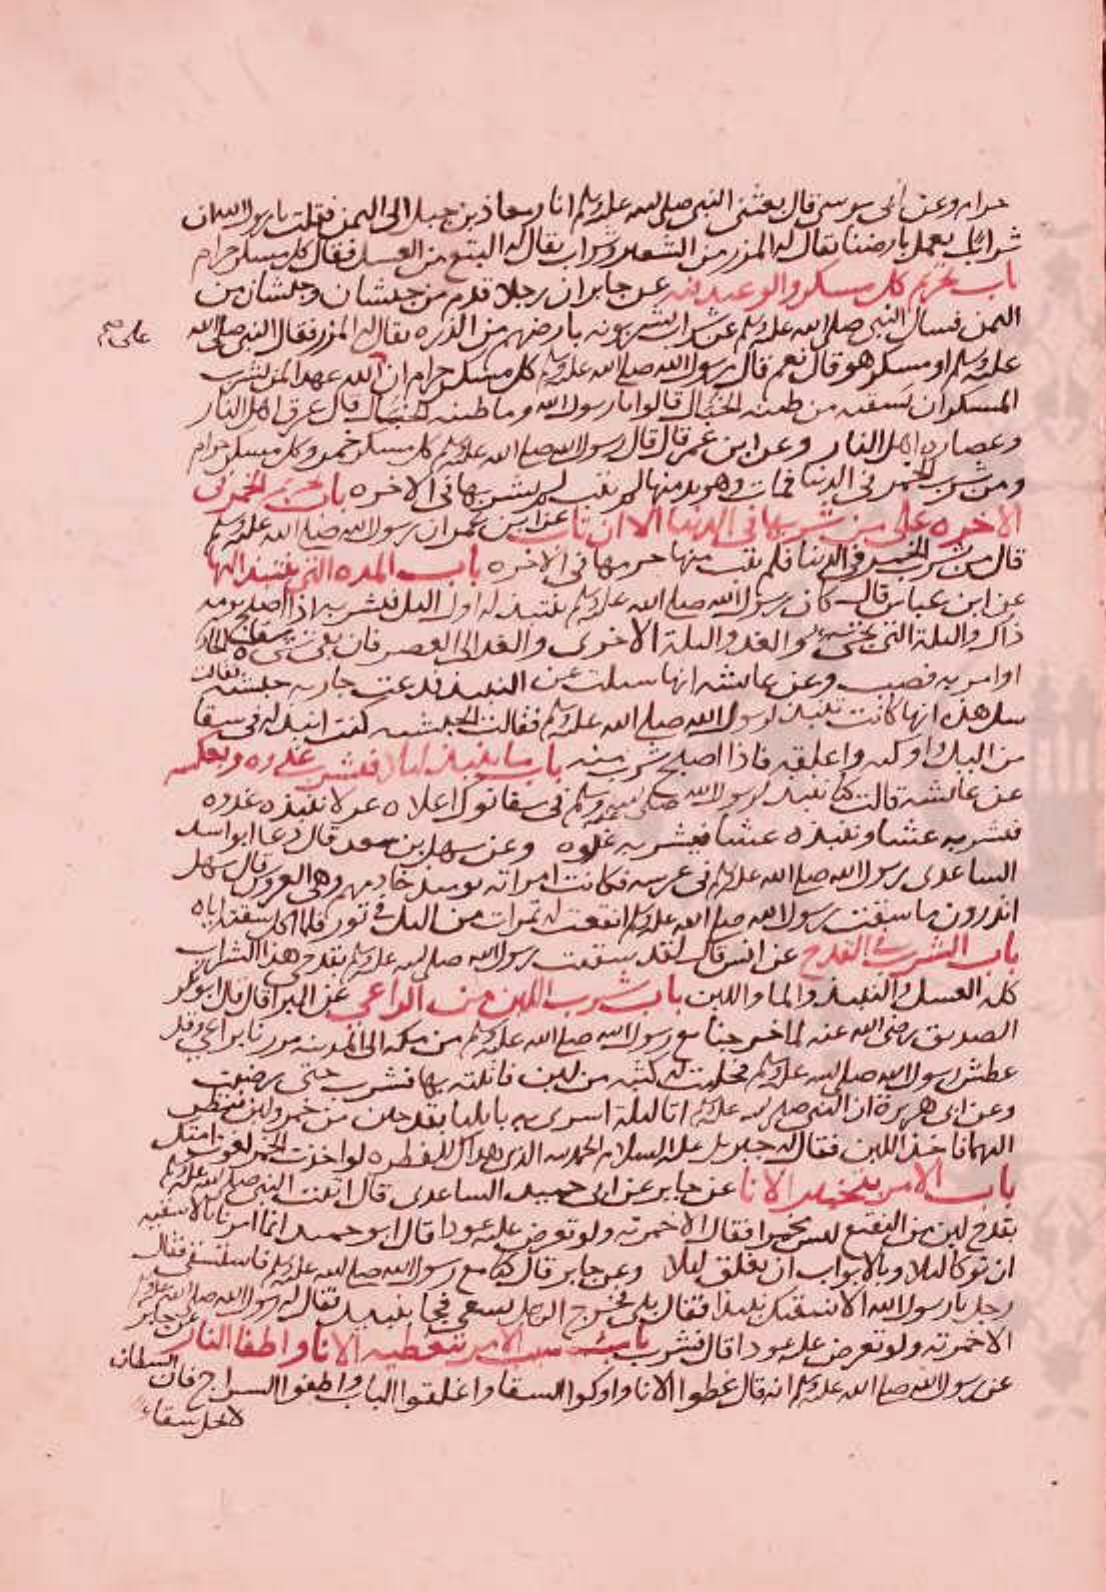 حرام وعن أبي موسى قال بعثني النبي صلى الله عليه وسلم انا ومعاذ بن جبل الى اليمن فقلت يا رسول الله ان
شرابا يعمل بارضنا يقال له المزر من الشعير وشراب يقال له البتع من العسل فقال كل مسكر حرام
باب تحريم كل مسكر والوعيد فيه عن جابر ان رجلا قدم من جيشان وجيشان من
اليمن فسال النبي صلى الله عليه وسلم عن شراب يشربونه بارضهم من الذره يقال له المزر فقال النبي صلى الله
عليه وسلم او مسكر هو قال نعم قال رسول الله صلى الله عليه وسلم كل مسكر حرام ان الله عهدا لمن يشرب
المسكر ان يسقيه من طينه الخبال قالوا يا رسول الله وما طينه الخبال قال عرق اهل النار
وعصاره اهل النار وعن ابن عمر قال قال رسول الله صلى الله عليه وسلم كل مسكر خمر وكل مسكر حرام
ومن شرب الخمر في الدنيا فمات وهو يدمنها لم يتب لم يشربها في الاخره باب تحريم الخمر في
الاخره على من شربها في الدنيا الا ان تاب عن ابن عمر ان رسول الله صلى الله عليه وسلم
قال من شرب الخمر في الدنيا فلم يتب منها حرمها في الاخره باب المده التي ينتبذ اليها
عن ابن عباس قال كان رسول الله صلى الله عليه وسلم ينتبذ له اول اليل فيشربه اذا اصبح يومه
ذاك واليلة التي تجي والغد واليلة الاخرى والغد الى العصر فان بقي شي سقاه الخادم
او امر به فصب وعن عايشه انها سيلت عن النبيذ فدعت جاريه حبشيه فقالت
سل هذه انها كانت تنبذ لرسول الله صلى الله عليه وسلم فقالت الحبشيه كنت انبذ له في سقا
من اليل واوكيه واعلقه فاذا اصبح شرب منه باب ما ينبذ ليلا فيشرب غدوه وبعكسه
عن عايشه قالت كنا ننبذ لرسول الله صلى الله عليه وسلم في سقا نوكا اعلاه عزلا ننبذه غدوه
فيشربه عشا وننبذه عشا فيشربه غدوه وعن سهل بن سعد قال دعا ابو اسيد
الساعدي رسول الله صلى الله عليه وسلم في عرسه فكانت امراته يوميذ خادمهم وهي العروس قال سهل
اتدرون ما سقت رسول الله صلى الله عليه وسلم انقعت له تمرات من اليل في تور فلما اكل سقته اياه
باب الشرب في القدح عن انس قال لقد سقيت رسول الله صلى الله عليه وسلم بقدحي هذا الشراب
كله العسل والنبيذ والما واللبن باب شرب اللبن من الراعي عن البرا قال قال ابو بكر
الصديق رضي الله عنه لما خرجنا مع رسول الله صلى الله عليه وسلم من مكه الى المدينه مررنا براعي وقد
عطش رسول الله صلى الله عليه وسلم فحلبت له كثبه من لبن فاتيته بها فشرب حتى رضيت
وعن ابي هريرة ان النبي صلى الله عليه وسلم اتا ليلة اسري به بايليا بقدحين من خمر ولبن فنظر
اليهما فاخذ اللبن فقال له جبريل عليه السلام الحمد لله الذي هداك للفطره لو اخذت الخمر لغوت امتك
باب الامر بتخمير الانا عن جابر عن ابي حميد الساعدي قال اتيت النبي صلى الله عليه وسلم
بقدح لبن من النقيع ليس بخمرا فقال الا خمرته ولو تعرض عليه عودا قال ابو حميد انما امرنا بالاسقيه
ان توكا ليلا وبالابواب ان تغلق ليلا وعن جابر قال كنا مع رسول الله صلى الله عليه وسلم فاستسقى فقال
رجل يا رسول الله الا نسقيك نبيذا فقال بلى فخرج الرجل يسعى فجا بنبيذ فقال له رسول الله صلى الله عليه وسلم
الا خمرته ولو تعرض عليه عودا قال فشرب باب الامر بتغطيه الانا واطفا النار عن جابر
عن رسول الله صلى الله عليه وسلم انه قال غطوا الانا واوكوا السقا واغلقوا الباب واطفوا السراج فان الشيطان
لا يحل سقاء